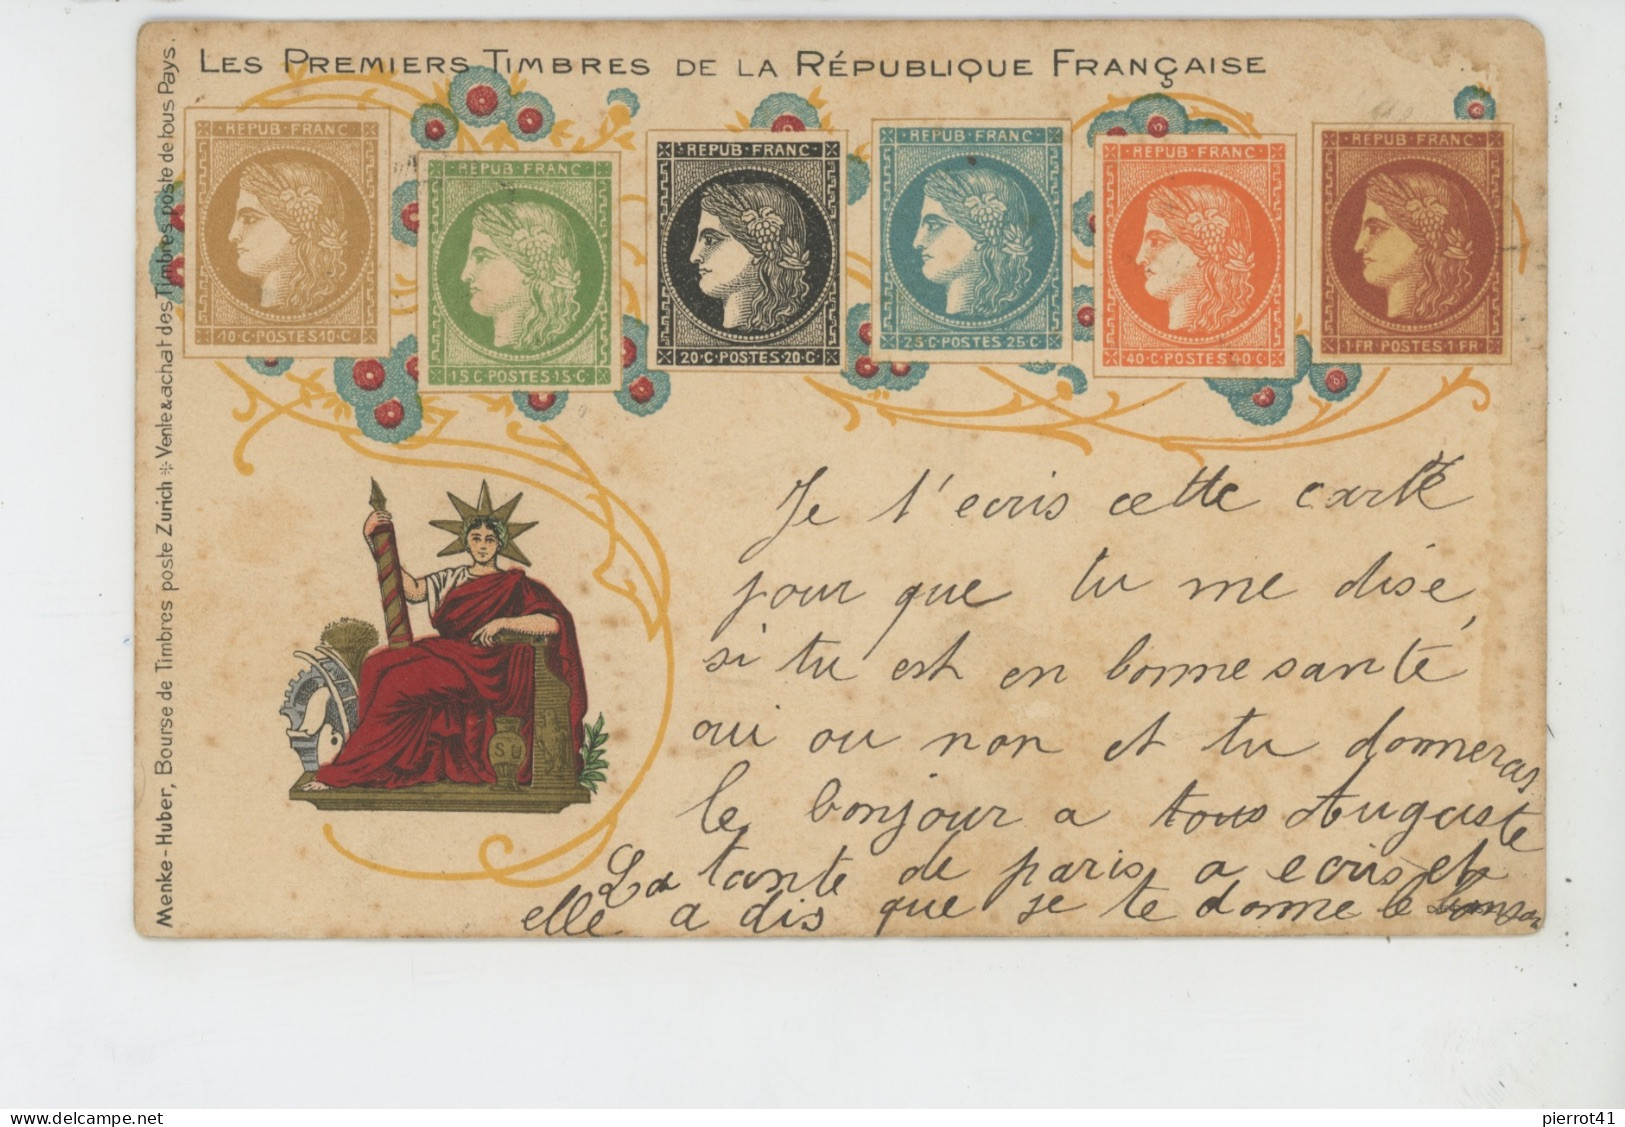 LES PREMIERS TIMBRES DE LA RÉPUBLIQUE FRANÇAISE
Menke-Huber, Bourse de Timbres poste Zurich * Vente & achat des Timbres poste de tous Pays.
REPUB·FRANC
10·C·POSTES·10·C
REPUB·FRANC
15·C·POSTES·15·C
REPUB·FRANC
20·C·POSTES·20·C
REPUB·FRANC
25·C·POSTES·25·C
REPUB·FRANC
40·C·POSTES·40·C
REPUB·FRANC
1·FR·POSTES·1·FR
SU
Je t'ecris cette carte
pour que tu me disé
si tu est en bonne santé
oui ou non et tu donneras
le bonjour a tous Auguste
La tante de paris a ecris et
elle a dis que je te donne le
delcampe.net
pierrot41